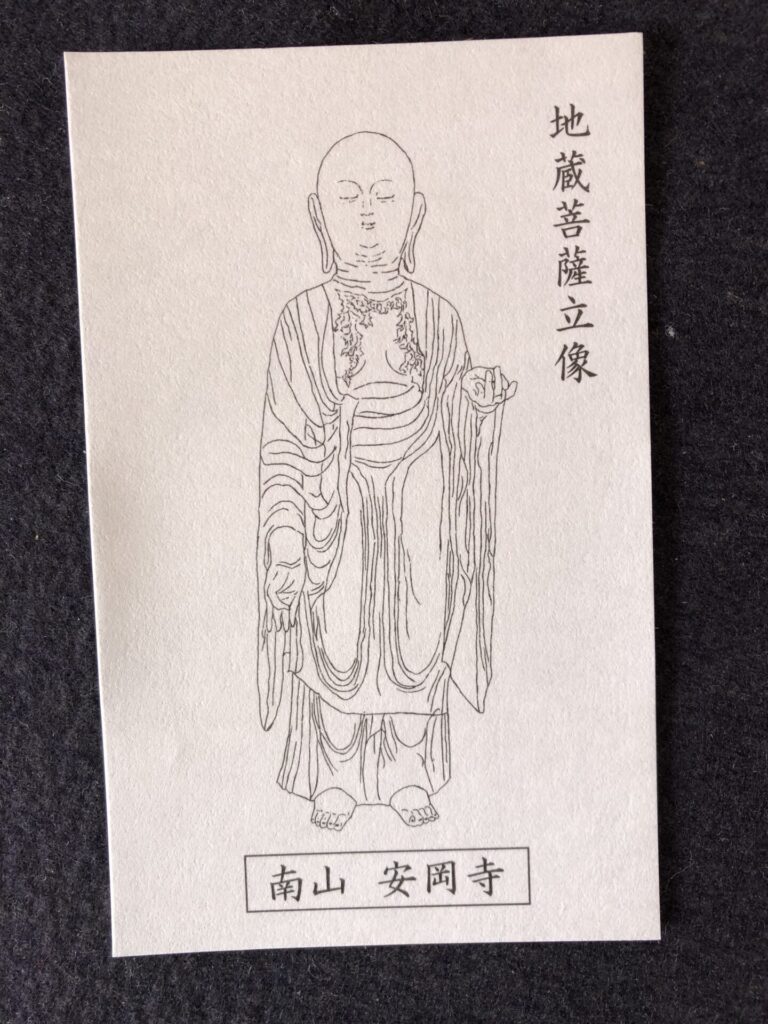 地蔵菩薩立像
南山 安岡寺